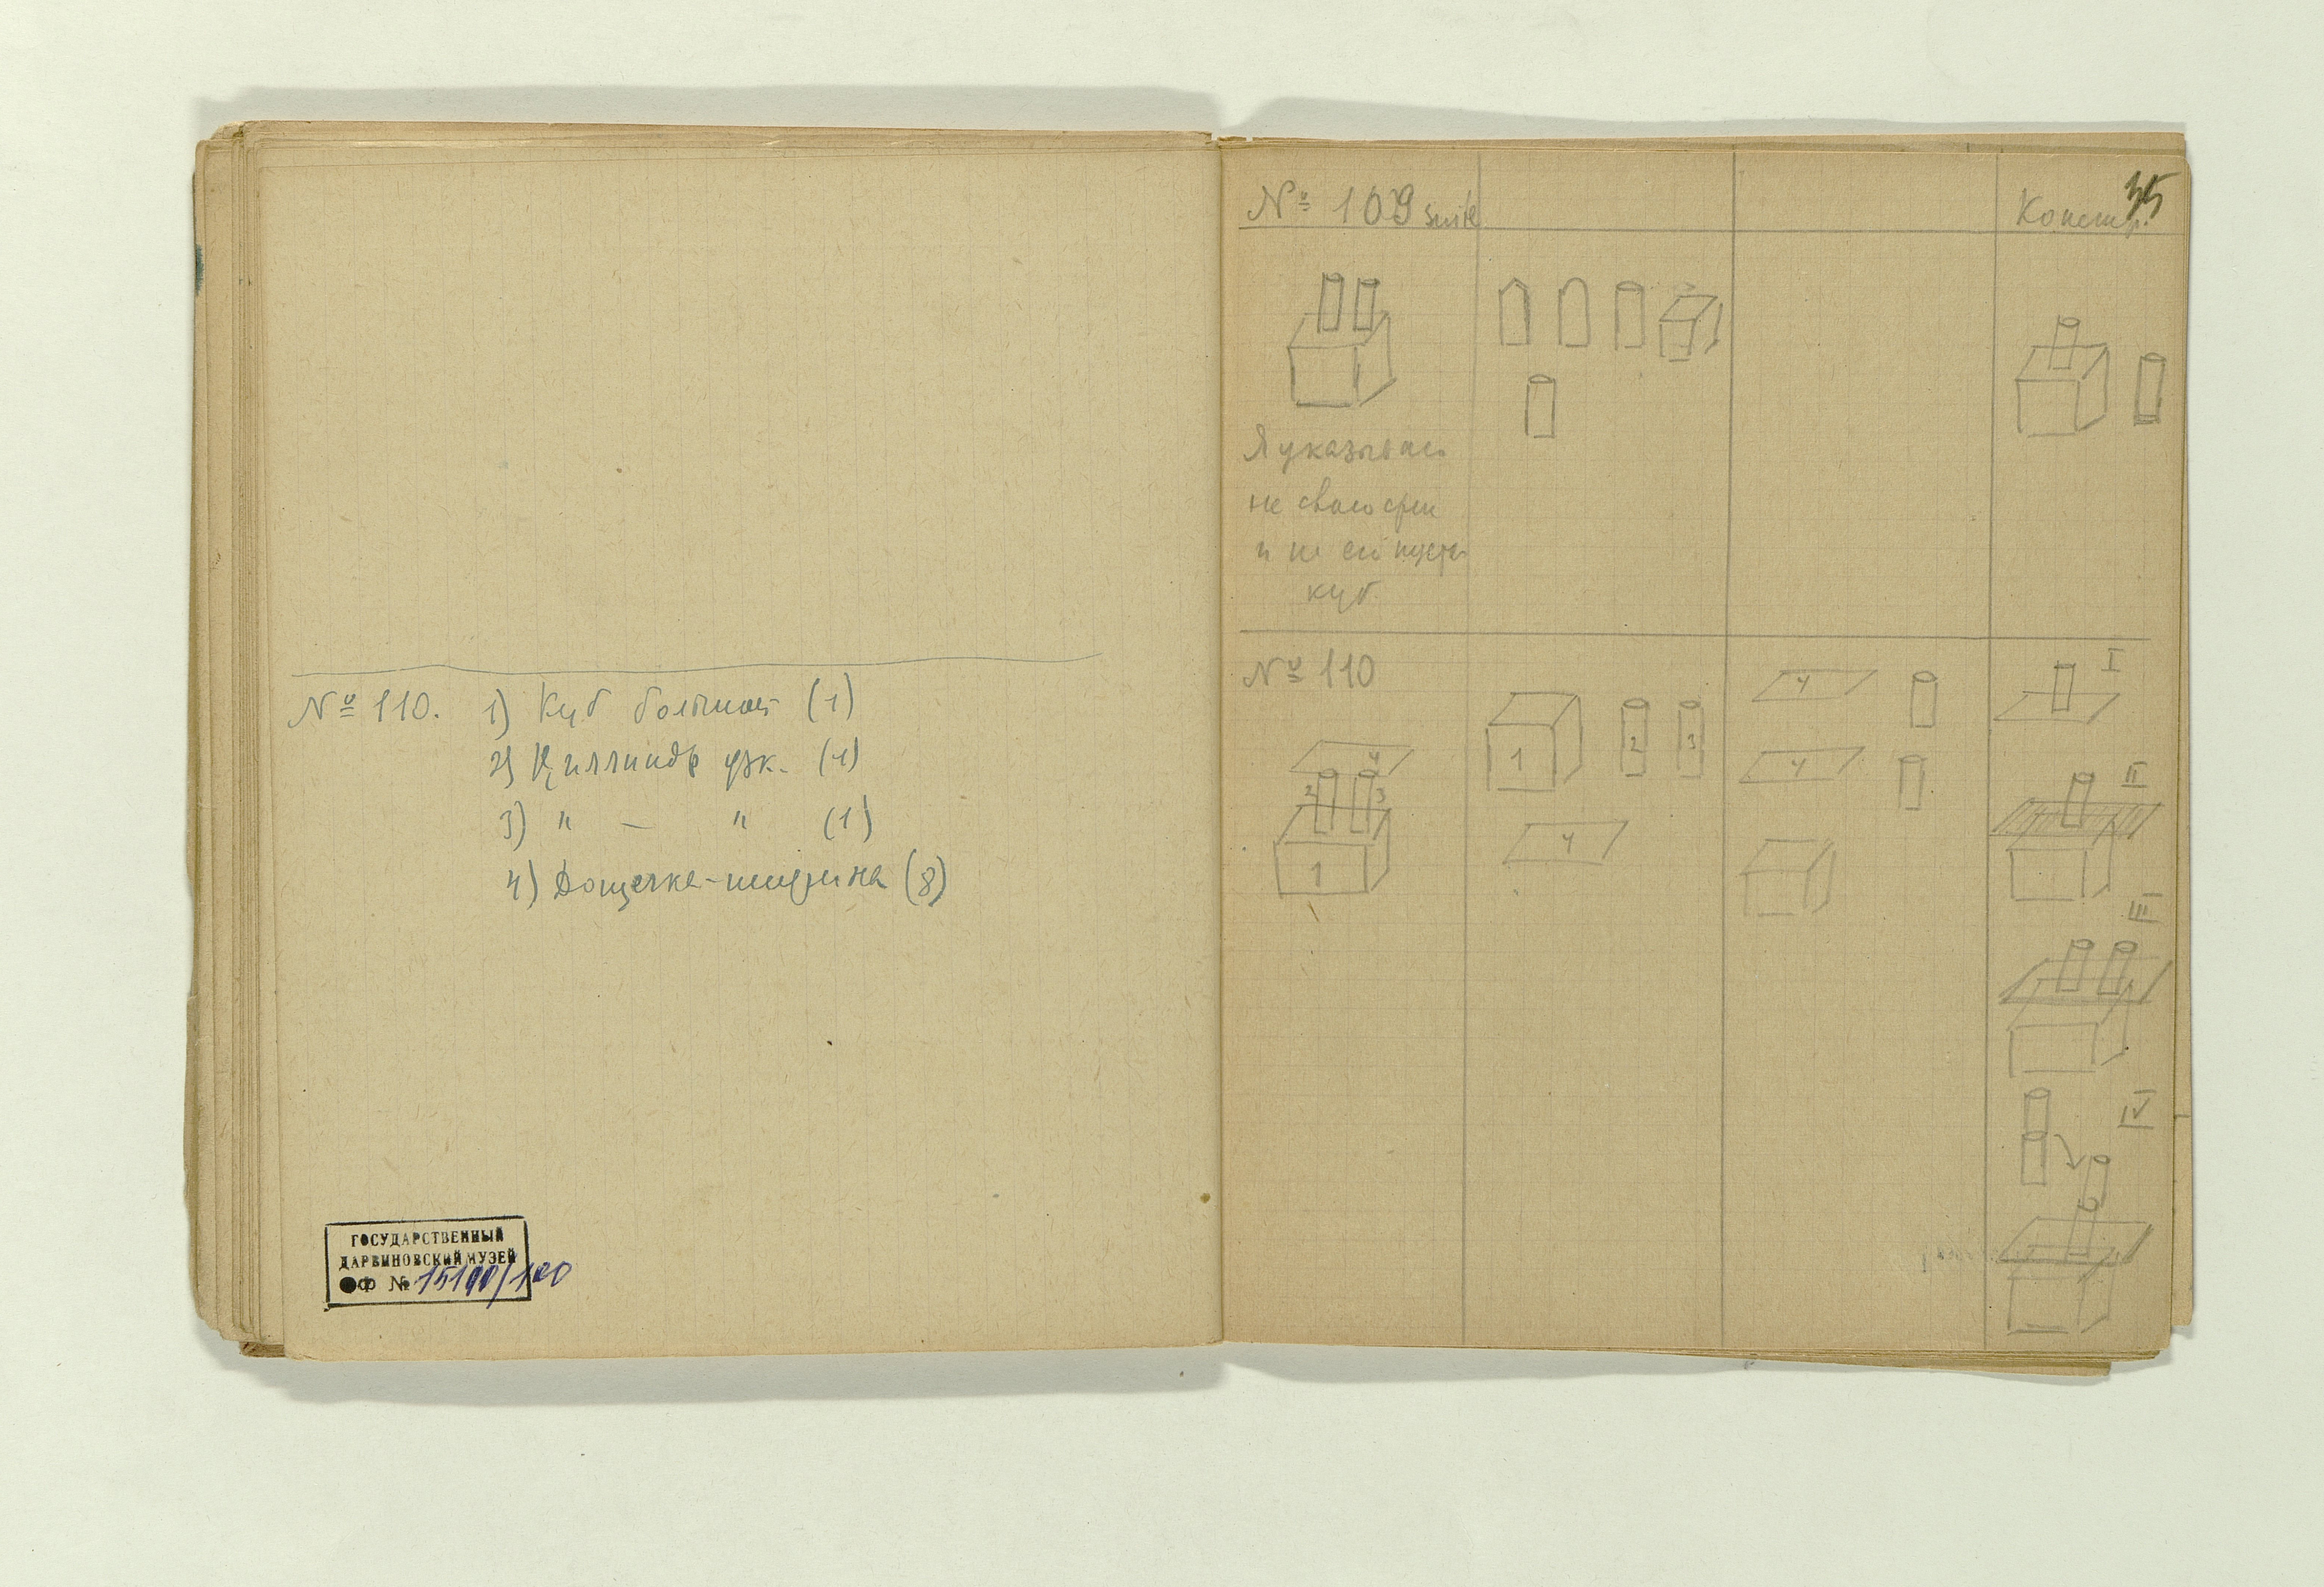 № 110. 1) Куб большой (1)
2) Циллиндр узк. (1)
3) " — " (1)
4) Дощечка-ширина (8)
ГОСУДАРСТВЕННЫЙ
ДАРВИНОВСКИЙ МУЗЕЙ
ОФ № 15190/100
35
№ 109 suite
Констр.
Я указываю
не
и куб
№ 110
4
2 3
1
1 2 3
4
4
4
I
II
III
IV